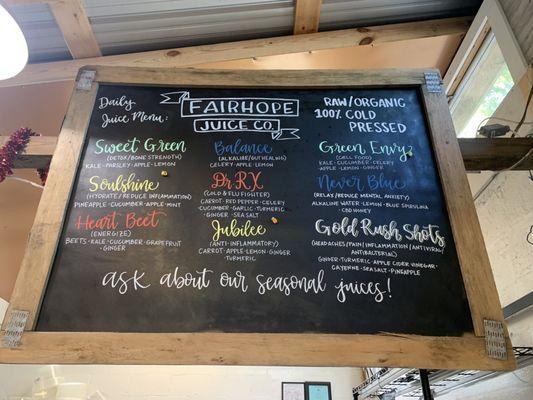 Daily
Juice Menu:
FAIRHOPE
JUICE CO
RAW/ORGANIC
100% COLD
PRESSED
Sweet Green
(DETOX/BONE STRENGTH)
KALE·PARSLEY·APPLE·LEMON
Soulshine
(HYDRATE/REDUCE INFLAMMATION)
PINEAPPLE·CUCUMBER·APPLE·MINT
Heart Beet
(ENERGIZE)
BEETS·KALE·CUCUMBER·GRAPEFRUIT
·GINGER
Balance
(ALKALIZE/YOUTH SERUM)
CELERY·APPLE·LEMON
Dr RX
(COLD & FLU FIGHTER)
CARROT·RED PEPPER·CELERY
CUCUMBER·GARLIC·TURMERIC
·GINGER·SEA SALT
Jubilee
(ANTI-INFLAMMATORY)
CARROT·APPLE·LEMON·GINGER
TURMERIC
Green Envy
(CELL FOOD)
KALE·CUCUMBER·CELERY
APPLE·LEMON·GINGER
Never Blue
(RELAX/REDUCE MENTAL ANXIETY)
ALKALINE WATER·LEMON·BLUE SPIRULINA
·CBD HONEY
Gold Rush Shots
(HEADACHES/PAIN/INFLAMMATION/ANTIVIRAL/
ANTIBACTERIAL)
GINGER·TURMERIC·APPLE CIDER VINEGAR·
CAYENNE·SEA SALT·PINEAPPLE
ask about our seasonal juices!